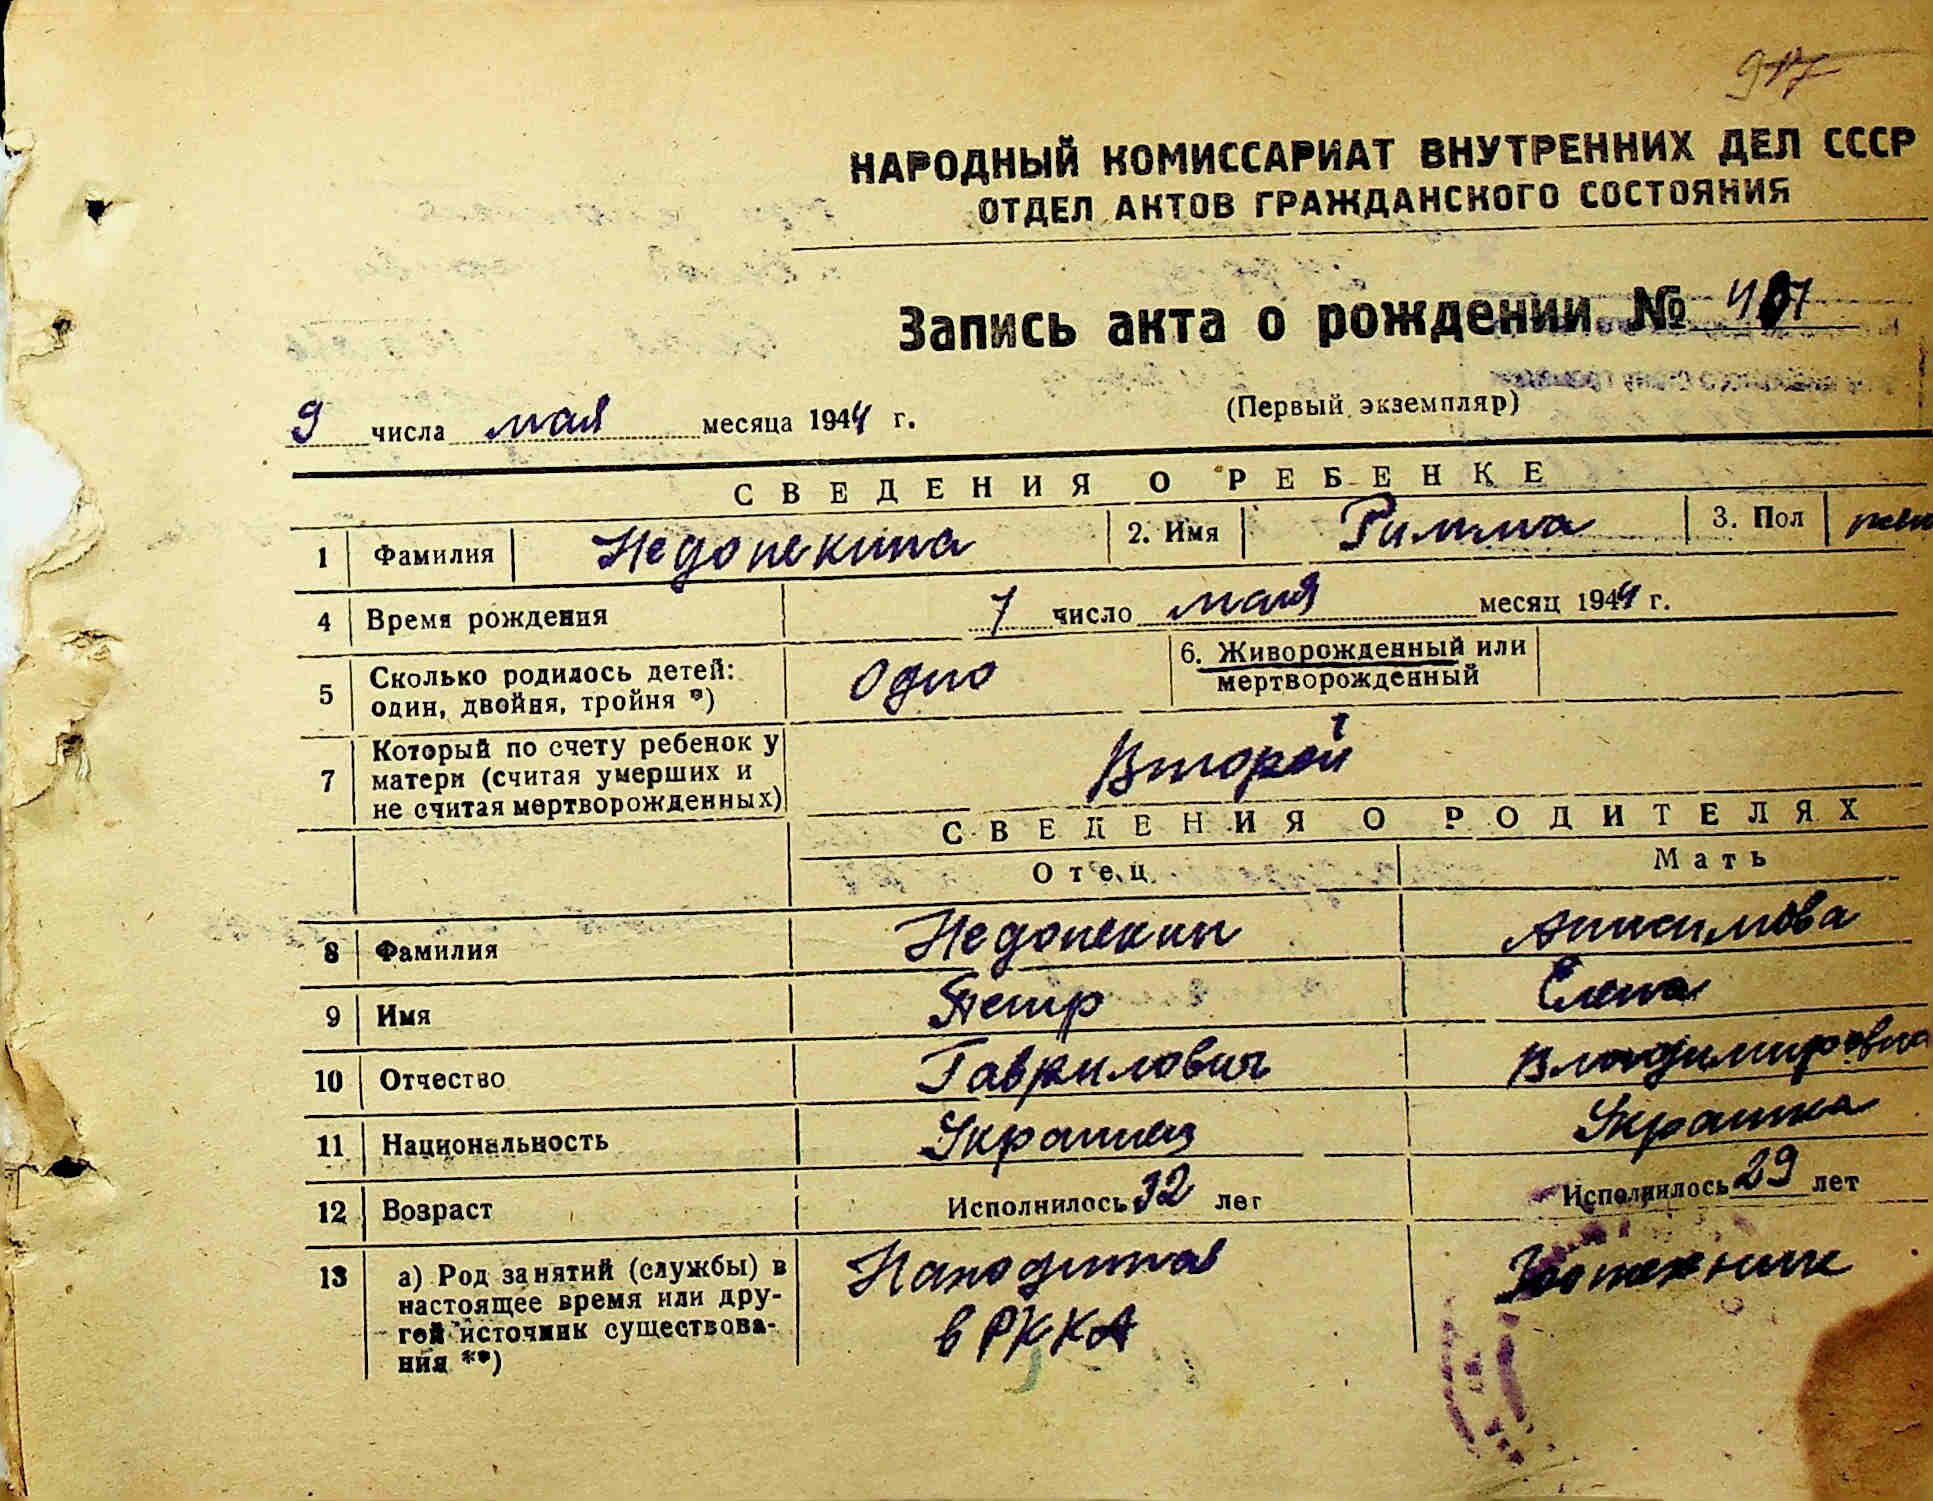 НАРОДНЫЙ КОМИССАРИАТ ВНУТРЕННИХ ДЕЛ СССР
ОТДЕЛ АКТОВ ГРАЖДАНСКОГО СОСТОЯНИЯ
Запись акта о рождении №
9 числа мая месяца 1944 г. (Первый экземпляр)
СВЕДЕНИЯ О РЕБЕНКЕ
1 Фамилия Недопекина 2. Имя Римма 3. Пол
4 Время рождения 7 число мая месяц 1944 г.
5 Сколько родилось детей: один, двойня, тройня *) Одно 6. Живорожденный или мертворожденный
7 Который по счету ребенок у матери (считая умерших и не считая мертворожденных) Второй
СВЕДЕНИЯ О РОДИТЕЛЯХ
Отец Мать
8 Фамилия Недопекин Анисимова
9 Имя Петр Елена
10 Отчество Гаврилович Владимировна
11 Национальность Украинец Украинка
12 Возраст Исполнилось 32 лет Исполнилось 29 лет
13 а) Род занятий (службы) в настоящее время или другой источник существования **) Находится в РККА Зоотехник